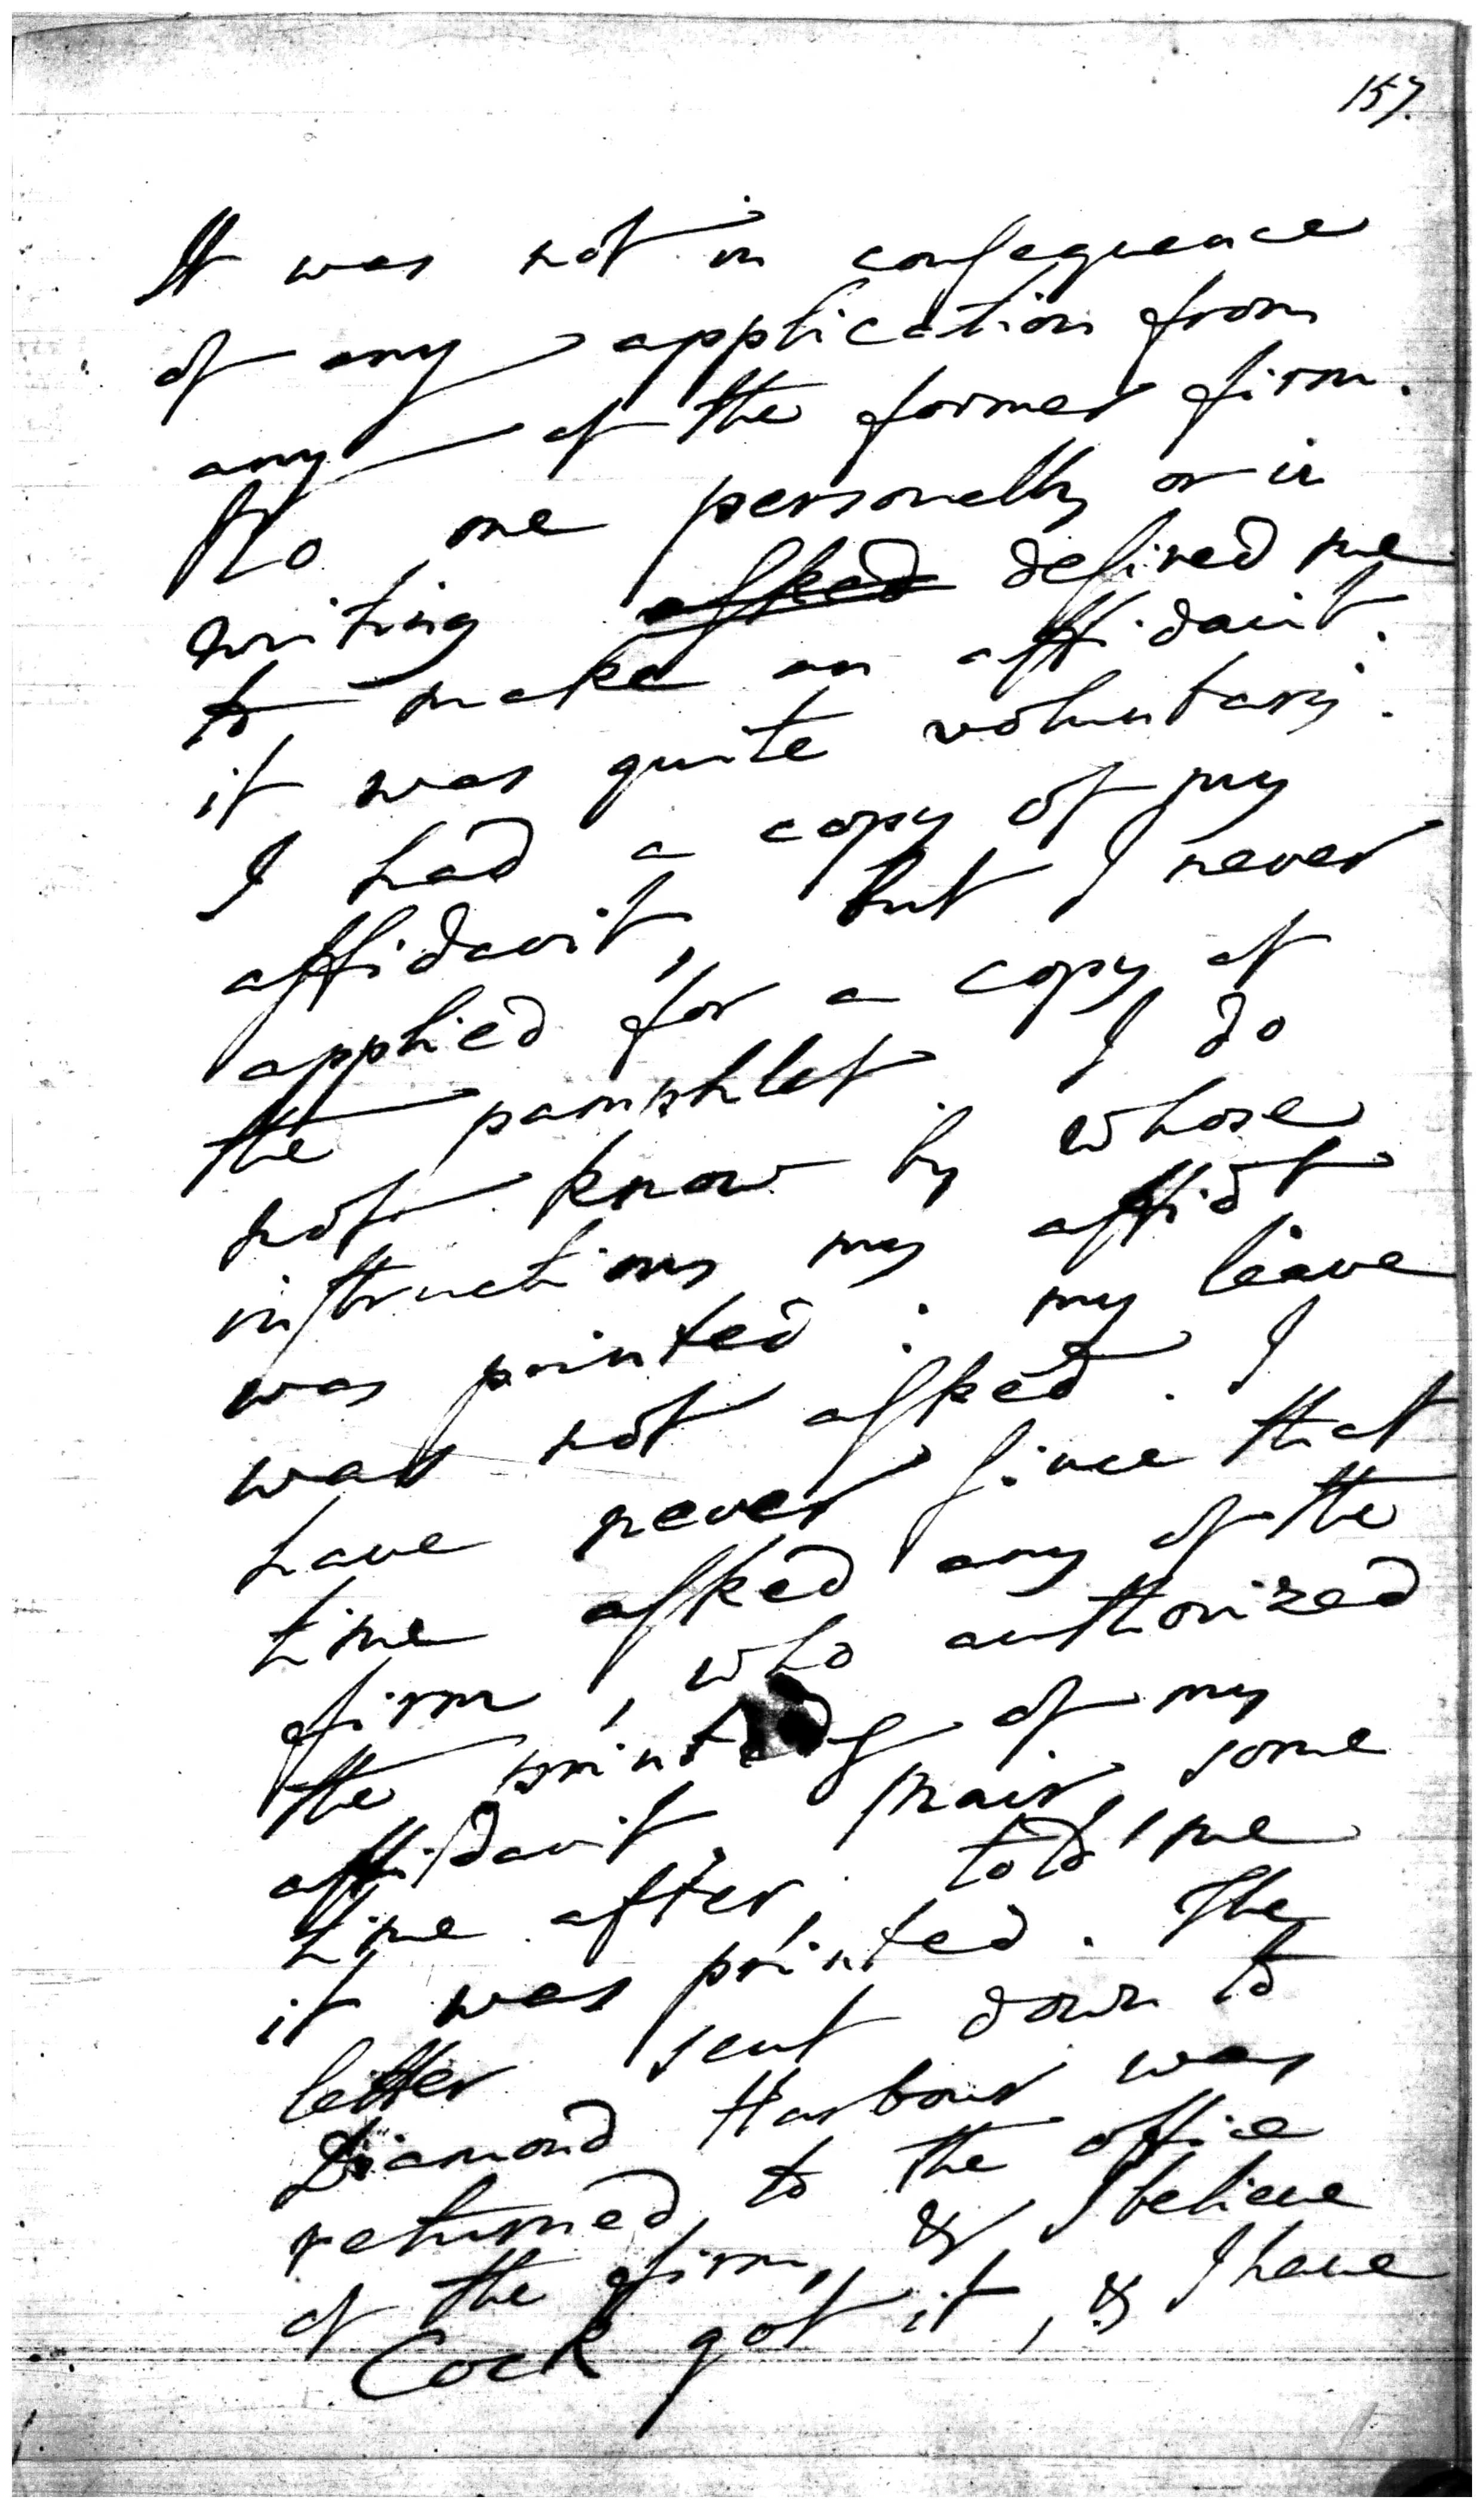 157.
It was not in consequence
of any application from
any of the former firm.
No one personally or in
writing asked desired me
to make an affidavit.
it was quite voluntary.
I had a copy of my
affidavit, but I never
applied for a copy of
the pamphlet. I do
not know by whose
instructions my affidt
was printed: my leave
was not asked. I
have never since that
time asked any of the
firm, who authorized
the printing of my
affidavit. Mair, some
time after, told me
it was printed. The
letter sent down to
Diamond Harbour was
returned to the office
of the firm, & I believe
Cock got it, & I have